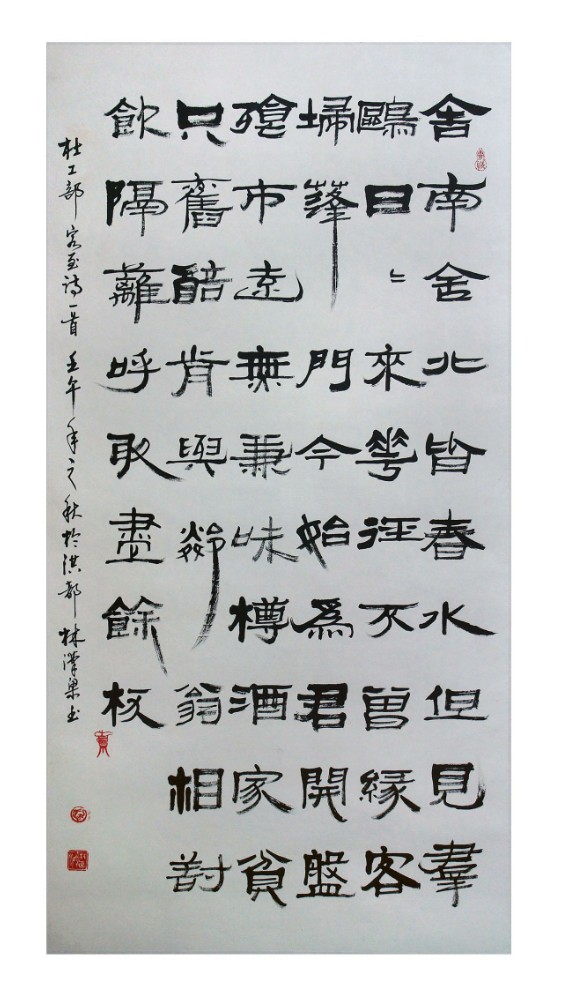 舍南舍北皆春水但見羣
鷗日〻來花徑不曾緣客
掃蓬門今始爲君開盤
飱市遠無兼味樽酒家貧
只舊醅肯與鄰翁相對
飲隔籬呼取盡餘杯
杜工部客至詩一首壬午年之秋於洪都林梁书